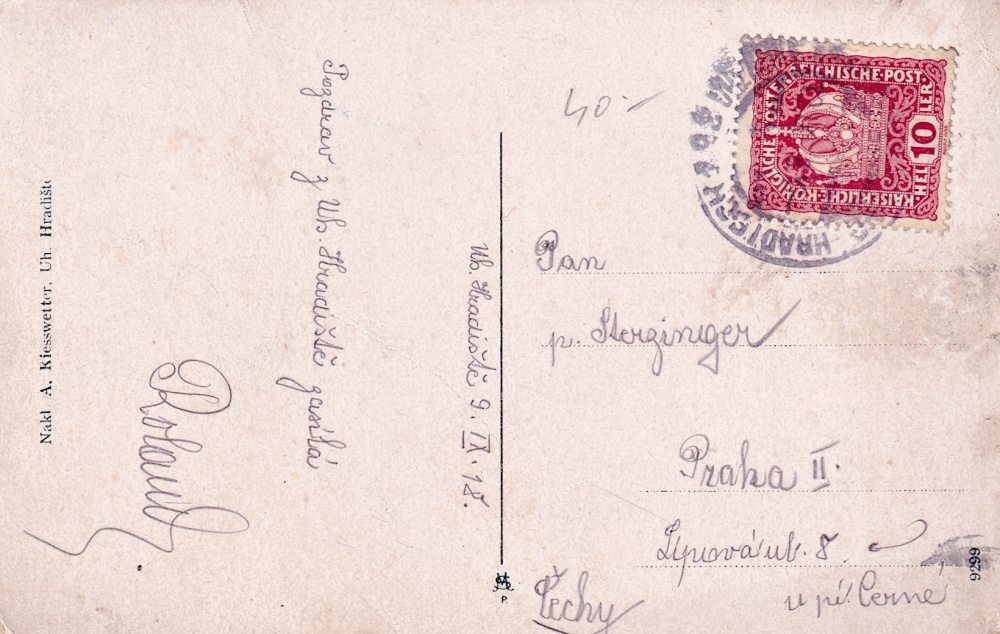 Pozdrav z Uh. Hradiště zasílá
Roland
Uh. Hradiště 9. IX. 18.
Nakl A. Kiesswetter, Uh. Hradiště
40-
KAISERLICHE·KÖNIGLICHE ÖSTERREICHISCHE·POST
HELLER
10
HRADISCH
Pan
p. Sterzinger
Praha II.
Lipová ul. 8.
u pí. Černé
Čechy
9299
P.